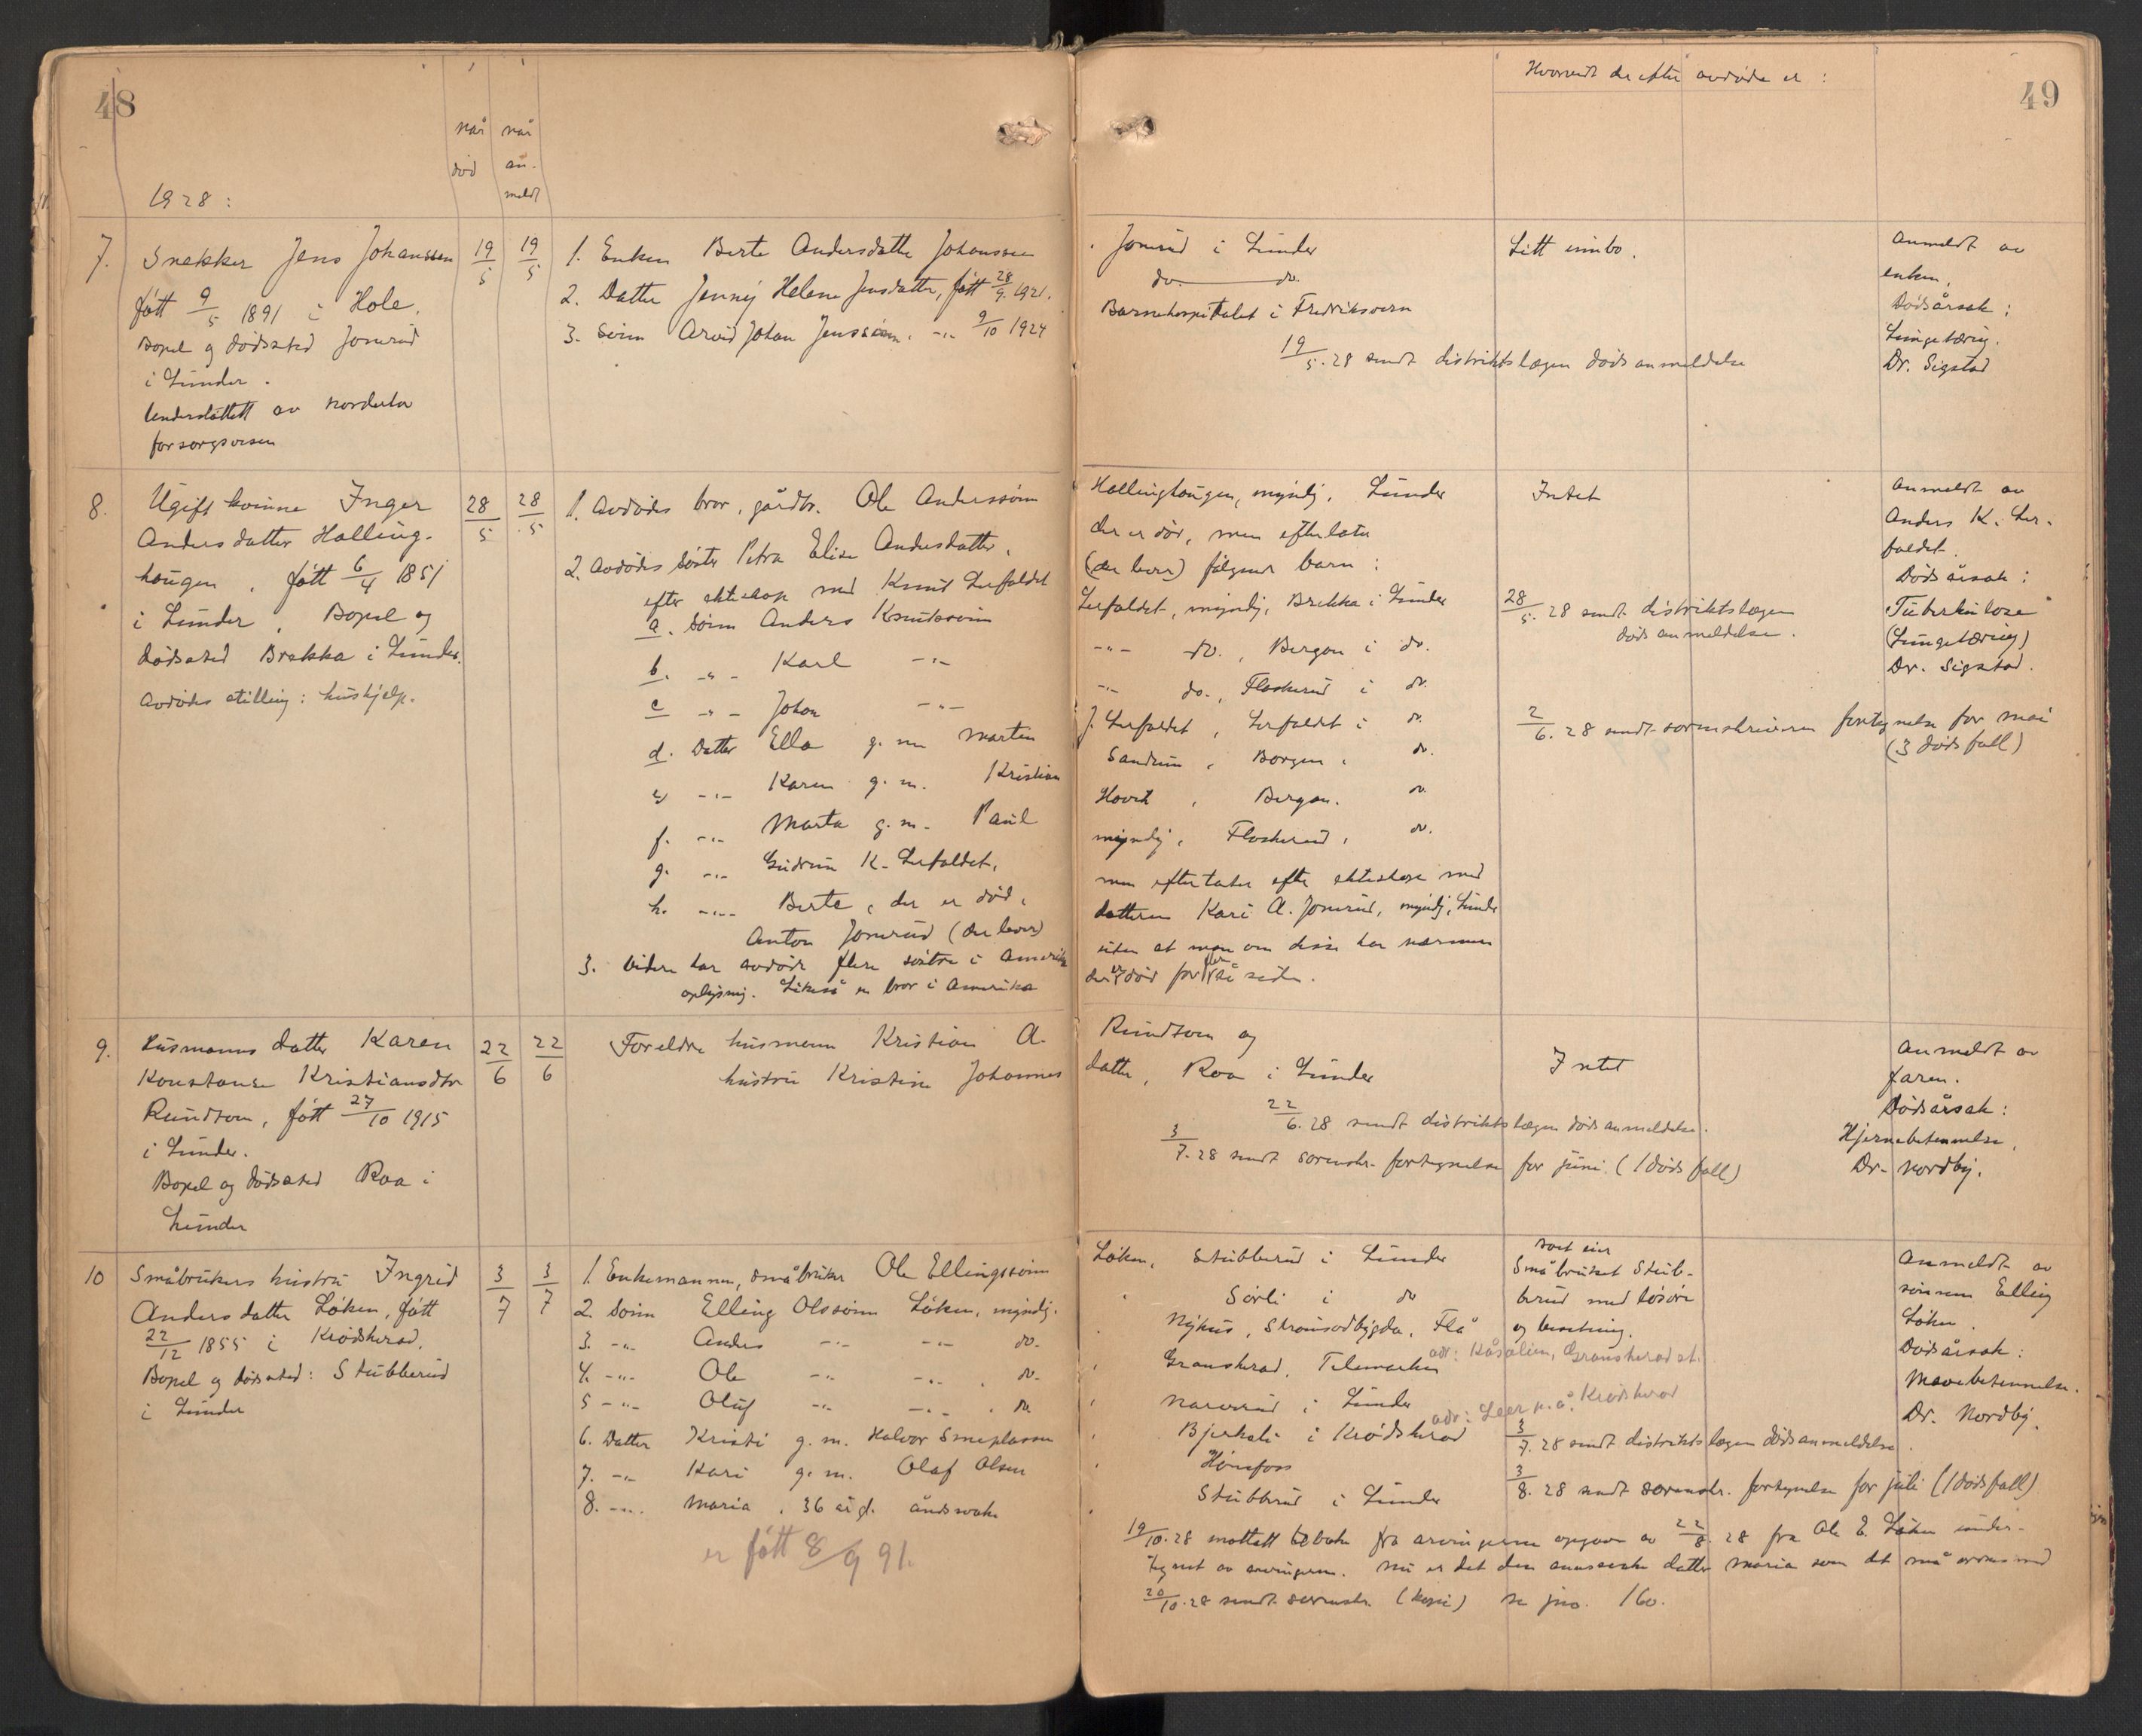 48
når når
død an-
meldt
1928:
7. Snekker Jens Johanssen 19/5 19/5
født 9/5 1891 i Hole.
Bopel og dødssted Jonsrud
i Lunder.
Understøttet av Norderhov
forsorgsvesen
1. Enken Berte Andersdatter Johanssen
2. Datter Jenny Helene Jensdatter, født 28/9 1921.
3. Sønn Arvid Johan Jenssønn. -"- 9/10 1924
8. Ugift kvinne Inger 28/5 28/5
Andersdatter Halling-
haugen, født 6/4 1851
i Lunder, Bopel og
dødssted Brekka i Lunder.
Avdødes stilling: hushjelp.
1. Avdødes bror, gårdbr. Ole Anderssønn
2. Avdødes søster Petra Elise Andersdatter,
efter ekteskap med Knut Lerfaldet
a. Sønn Anders Knutssønn
b. -"- Karl -"-
c -"- Johan -"-
d. Datter Ella g. m. Marten
e) -"- Karen g. m. Kristian
f. -"- Marta g. m. Paul
g. -"- Gudrun K. Lerfaldet,
h. -"- Berte, der er død,
Anton Jonsrud (der lever)
3. Videre har avdøde flere søstre i Amerika
oplysning. Likeså en bror i Amerika
9. Husmanns datter Karen 22/6 22/6
Konstanse Kristiansdtr
Rundtom, født 27/10 1915
i Lunder.
Bopel og dødssted Roa i
Lunder
Foreldre husmann Kristian A.
hustru Kristine Johannes
10 Småbrukers hustru Ingrid 3/7 3/7
Andersdatter Løken, født
22/12 1855 i Krødsherad.
Bopel og dødssted: Stubberud
i Lunder
1. Enkemannen, småbruker Ole Ellingssønn
2. Sønn Elling Olssønn Løken, myndig.
3. -"- Anders -"- -"- do.
4. -"- Ole -"- -"- . do.
5 -"- Oluf -"- -"- . do.
6. Datter Kristi g. m. Halvor Smeplassen
7. -"- Kari g. m. Olaf Olsen
8. -"- Maria, 36 år gl. åndssvak
er født 8/9 91.
49
Hvorvidt der efter avdøde er :
Jonsrud i Lunder Litt innbo.
do. do.
Barnehospitalet i Fredriksvern
19/5.28 sendt distriktslægen dødsanmeldelse
Anmeldt av
enken,
Dødsårsak:
Lungetæring.
Dr. Sigstad
Hallinghaugen, myndig, Lunder Intet
der er død, men efterlater
(der lever) følgende barn:
Lerfaldet, myndig, Brekka i Lunder
-"- do., Bergan i do.
-"- do., Flaskerud i do.
J. Lerfaldet, Lerfaldet i do.
Sandum, Borgen, do.
Hovde, Bergan. do.
myndig, Flaskerud, do.
men efterlater efter ekteskap med
datteren Kari A. Jonsrud, myndig, Lunder
uten at man om disse har nærmere
der er død for flere år siden.
28/5.28 sendt distriktslægen
dødsanmeldelse.
2/6.28 sendt sorenskriveren fortegnelse for mai
(3 dødsfall)
Anmeldt av
Anders K. Ler-
faldet.
Dødsårsak:
Tuberkulose
(Lungetæring)
Dr. Sigstad.
Rundtom og
datter, Roa i Lunder Intet
22/6.28 sendt distriktslægen dødsanmeldelse.
3/7.28 sendt sorenskr. fortegnelse for juni. (1 dødsfall)
Anmeldt av
faren.
Dødsårsak:
Hjernebetennelse.
Dr. Nordby.
Løken, Stubberud i Lunder
Sørli i do
Nyhus, Strømsodbygda, Flå
Gransherad, Telemarken
Narverud i Lunder
Bjerkeli i Krødsherad
Hønefoss
Stubberud i Lunder
Småbruket Stub-
berud med løsøre
og besetning.
adr: Kåsalien, Gransherad st.
adr: Leer p.å. Krødsherad
3/7.28 sendt distriktslægen dødsanmeldelse.
3/8.28 sendt sorenskr. fortegnelse for juli (1 dødsfall)
Anmeldt av
sønnen Elling
Løken.
Dødsårsak:
Mavebetennelse.
Dr. Nordby.
19/10.28 mottatt tilbake fra arvingerne opgave av 22/8.28 fra Ole E. Løken under-
tegnet av arvingerne. Nu er det den datter Maria som det må
20/10.28 sendt sorenskr. (kopi) se jno. 160.